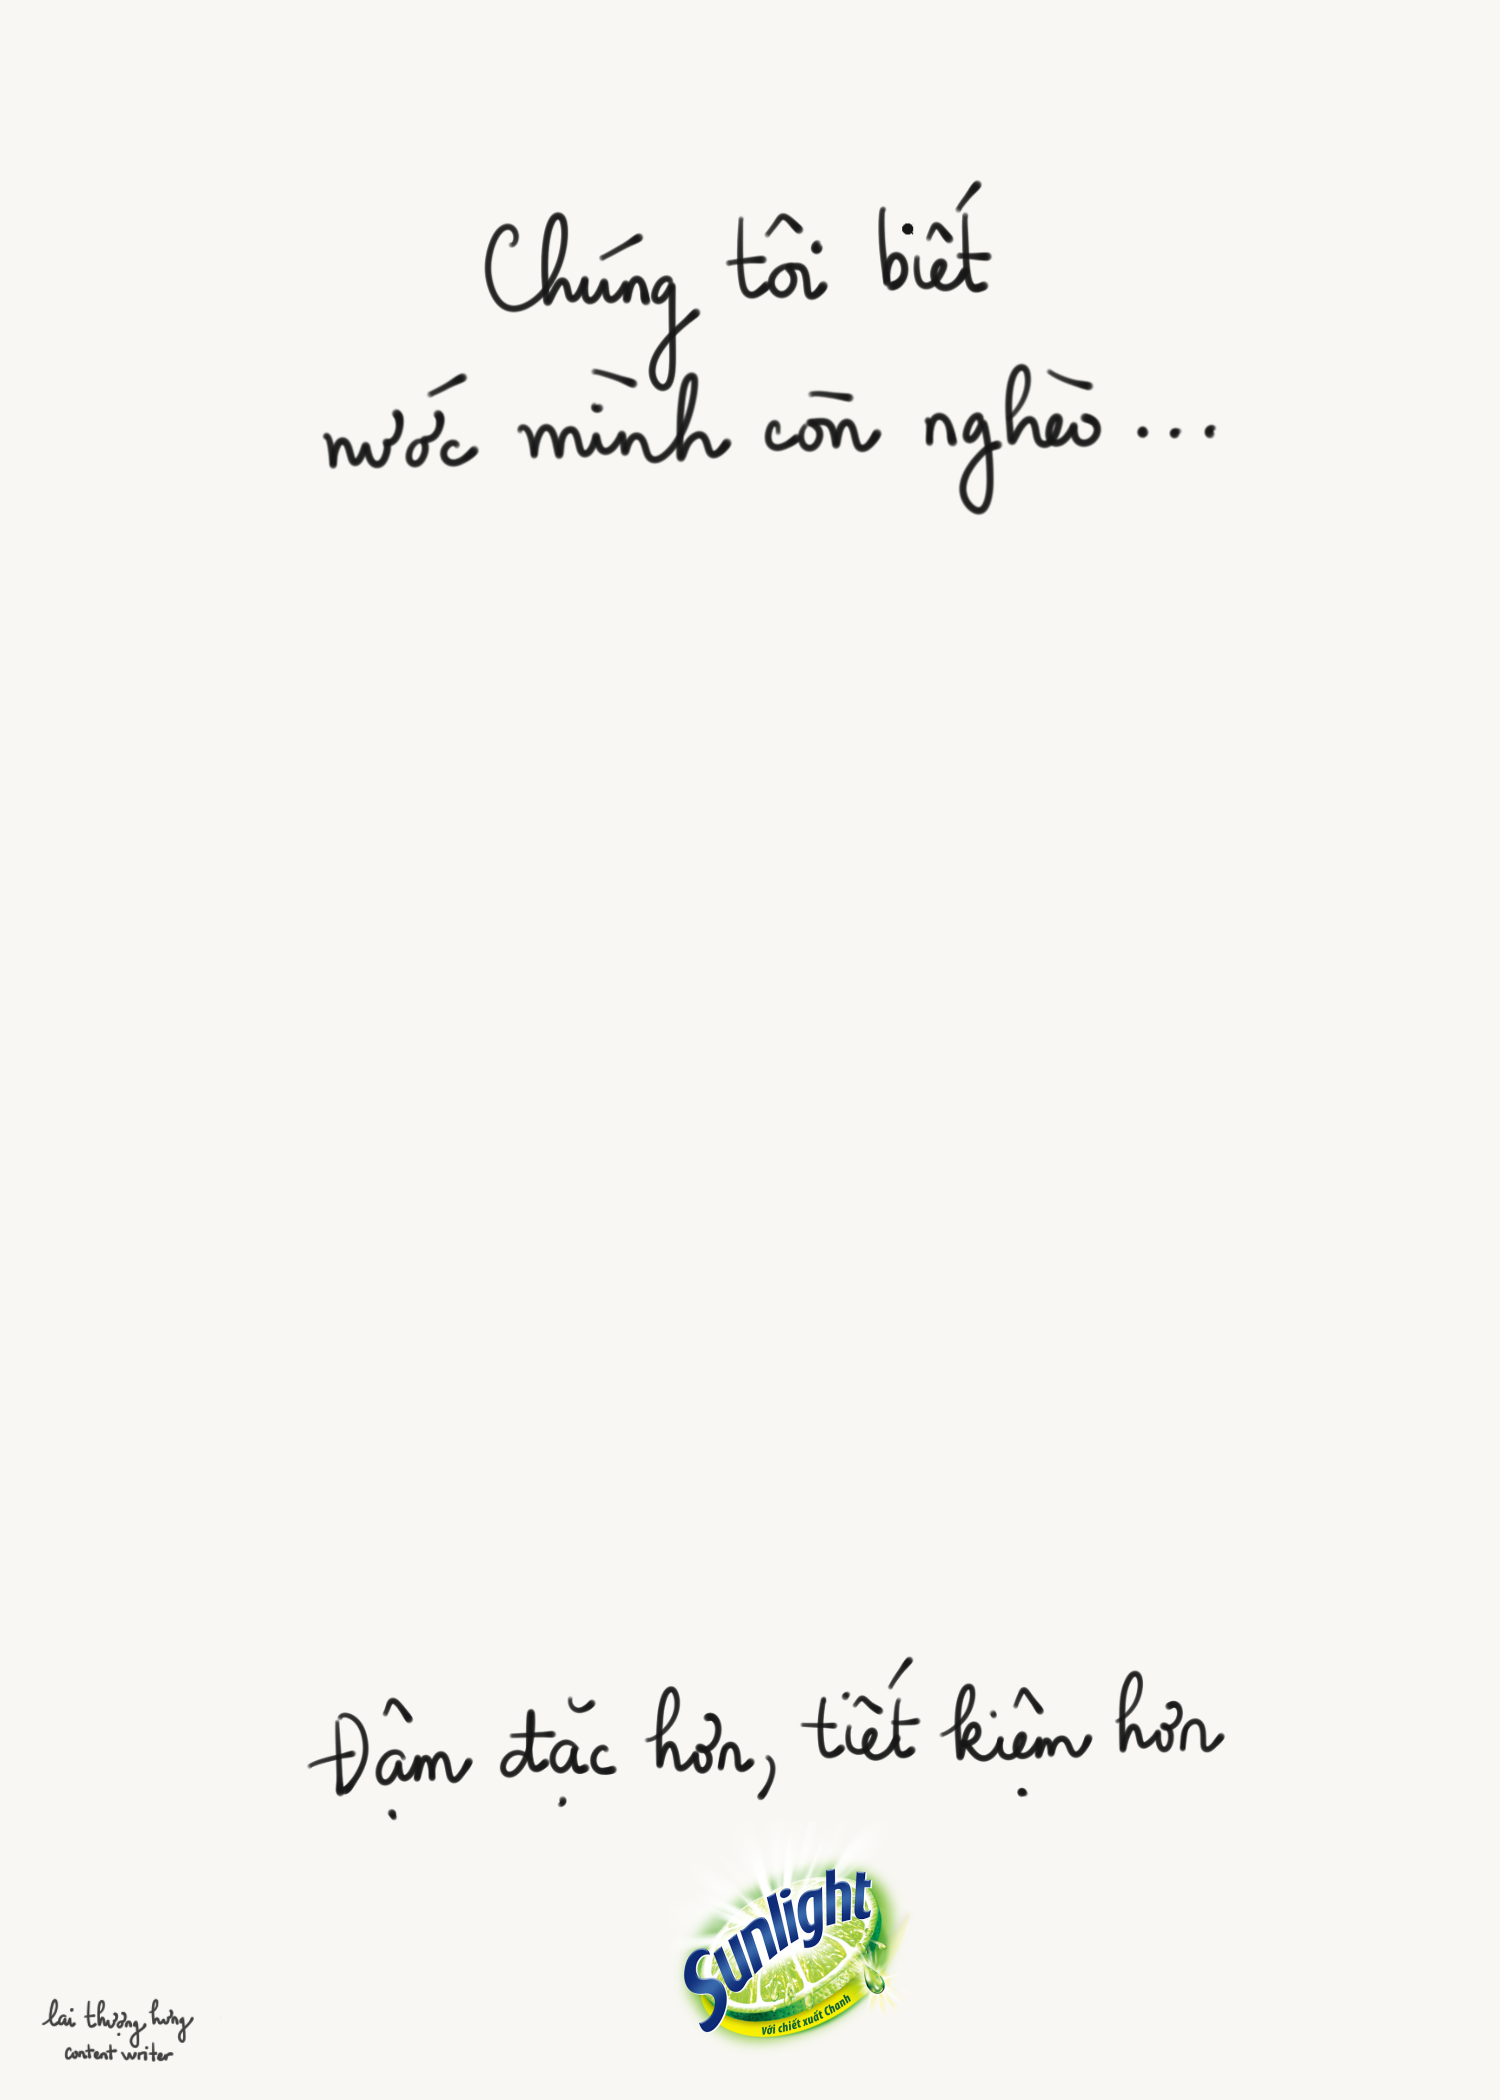 Chúng tôi biết
nước mình còn nghèo...
Đậm đặc hơn, tiết kiệm hơn
Sunlight
Với chiết xuất Chanh
lai thượng hưng
content writer